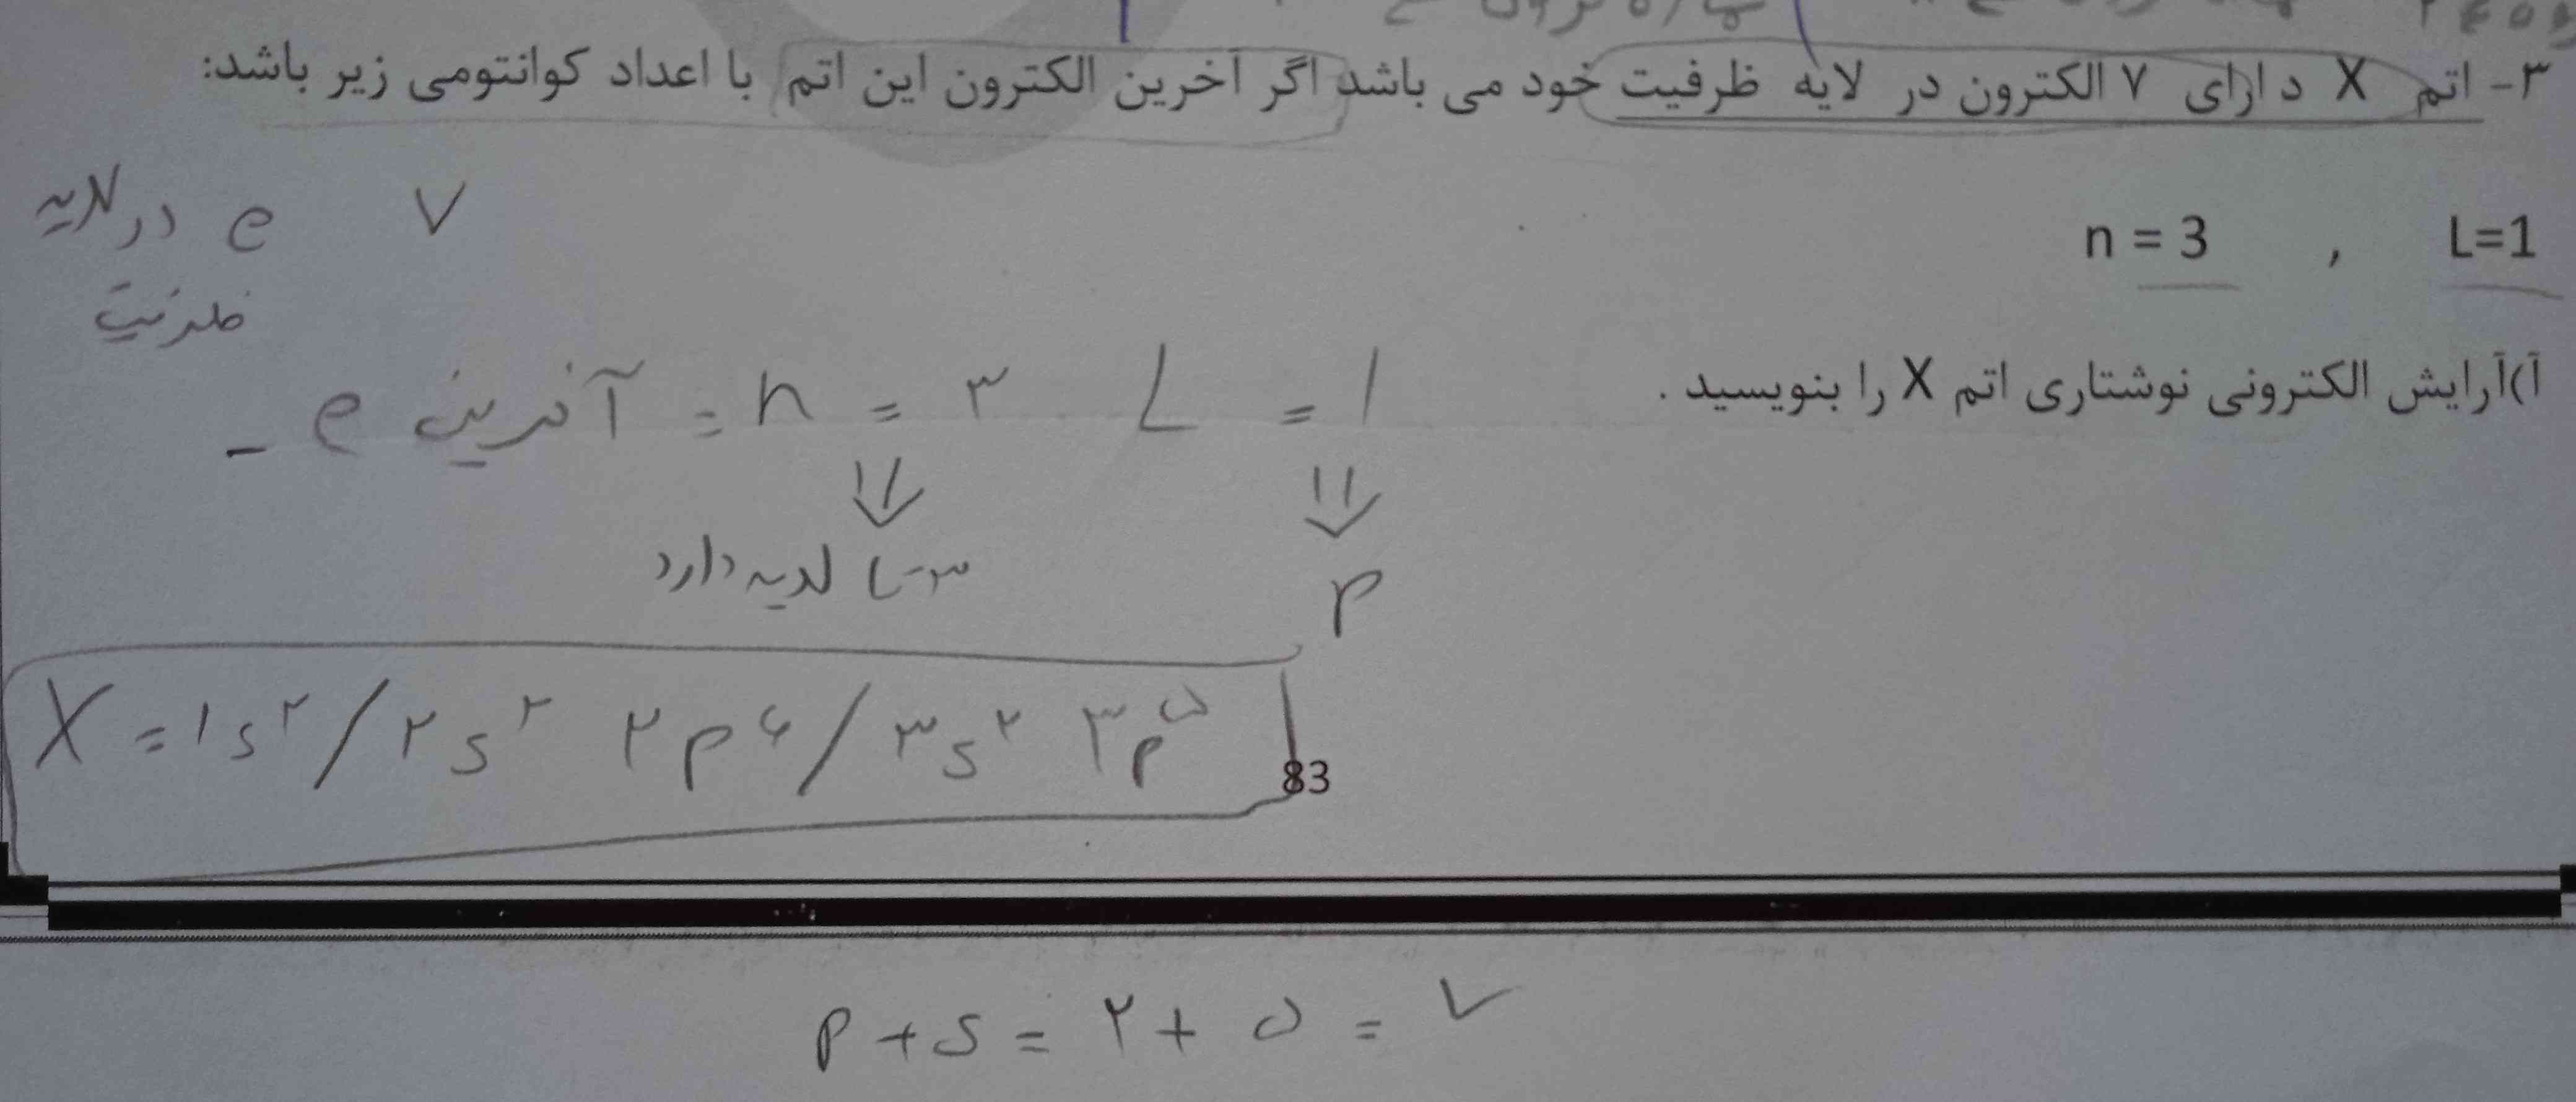 ۳- اتم X دارای ۷ الکترون در لایه ظرفیت خود می باشد اگر آخرین الکترون این اتم با اعداد کوانتومی زیر باشد:
n = 3 , L=1
۷ e در لایه
ظرفیت
آ)آرایش الکترونی نوشتاری اتم X را بنویسید .
- e آخرین = n = ۳ L = ۱
⇓ ⇓
۳ تا لایه دارد p
X = ۱s۲/۲s۲ ۲p۶/۳s۲ ۳p۵
83
p+s = ۲+۵ = ۷